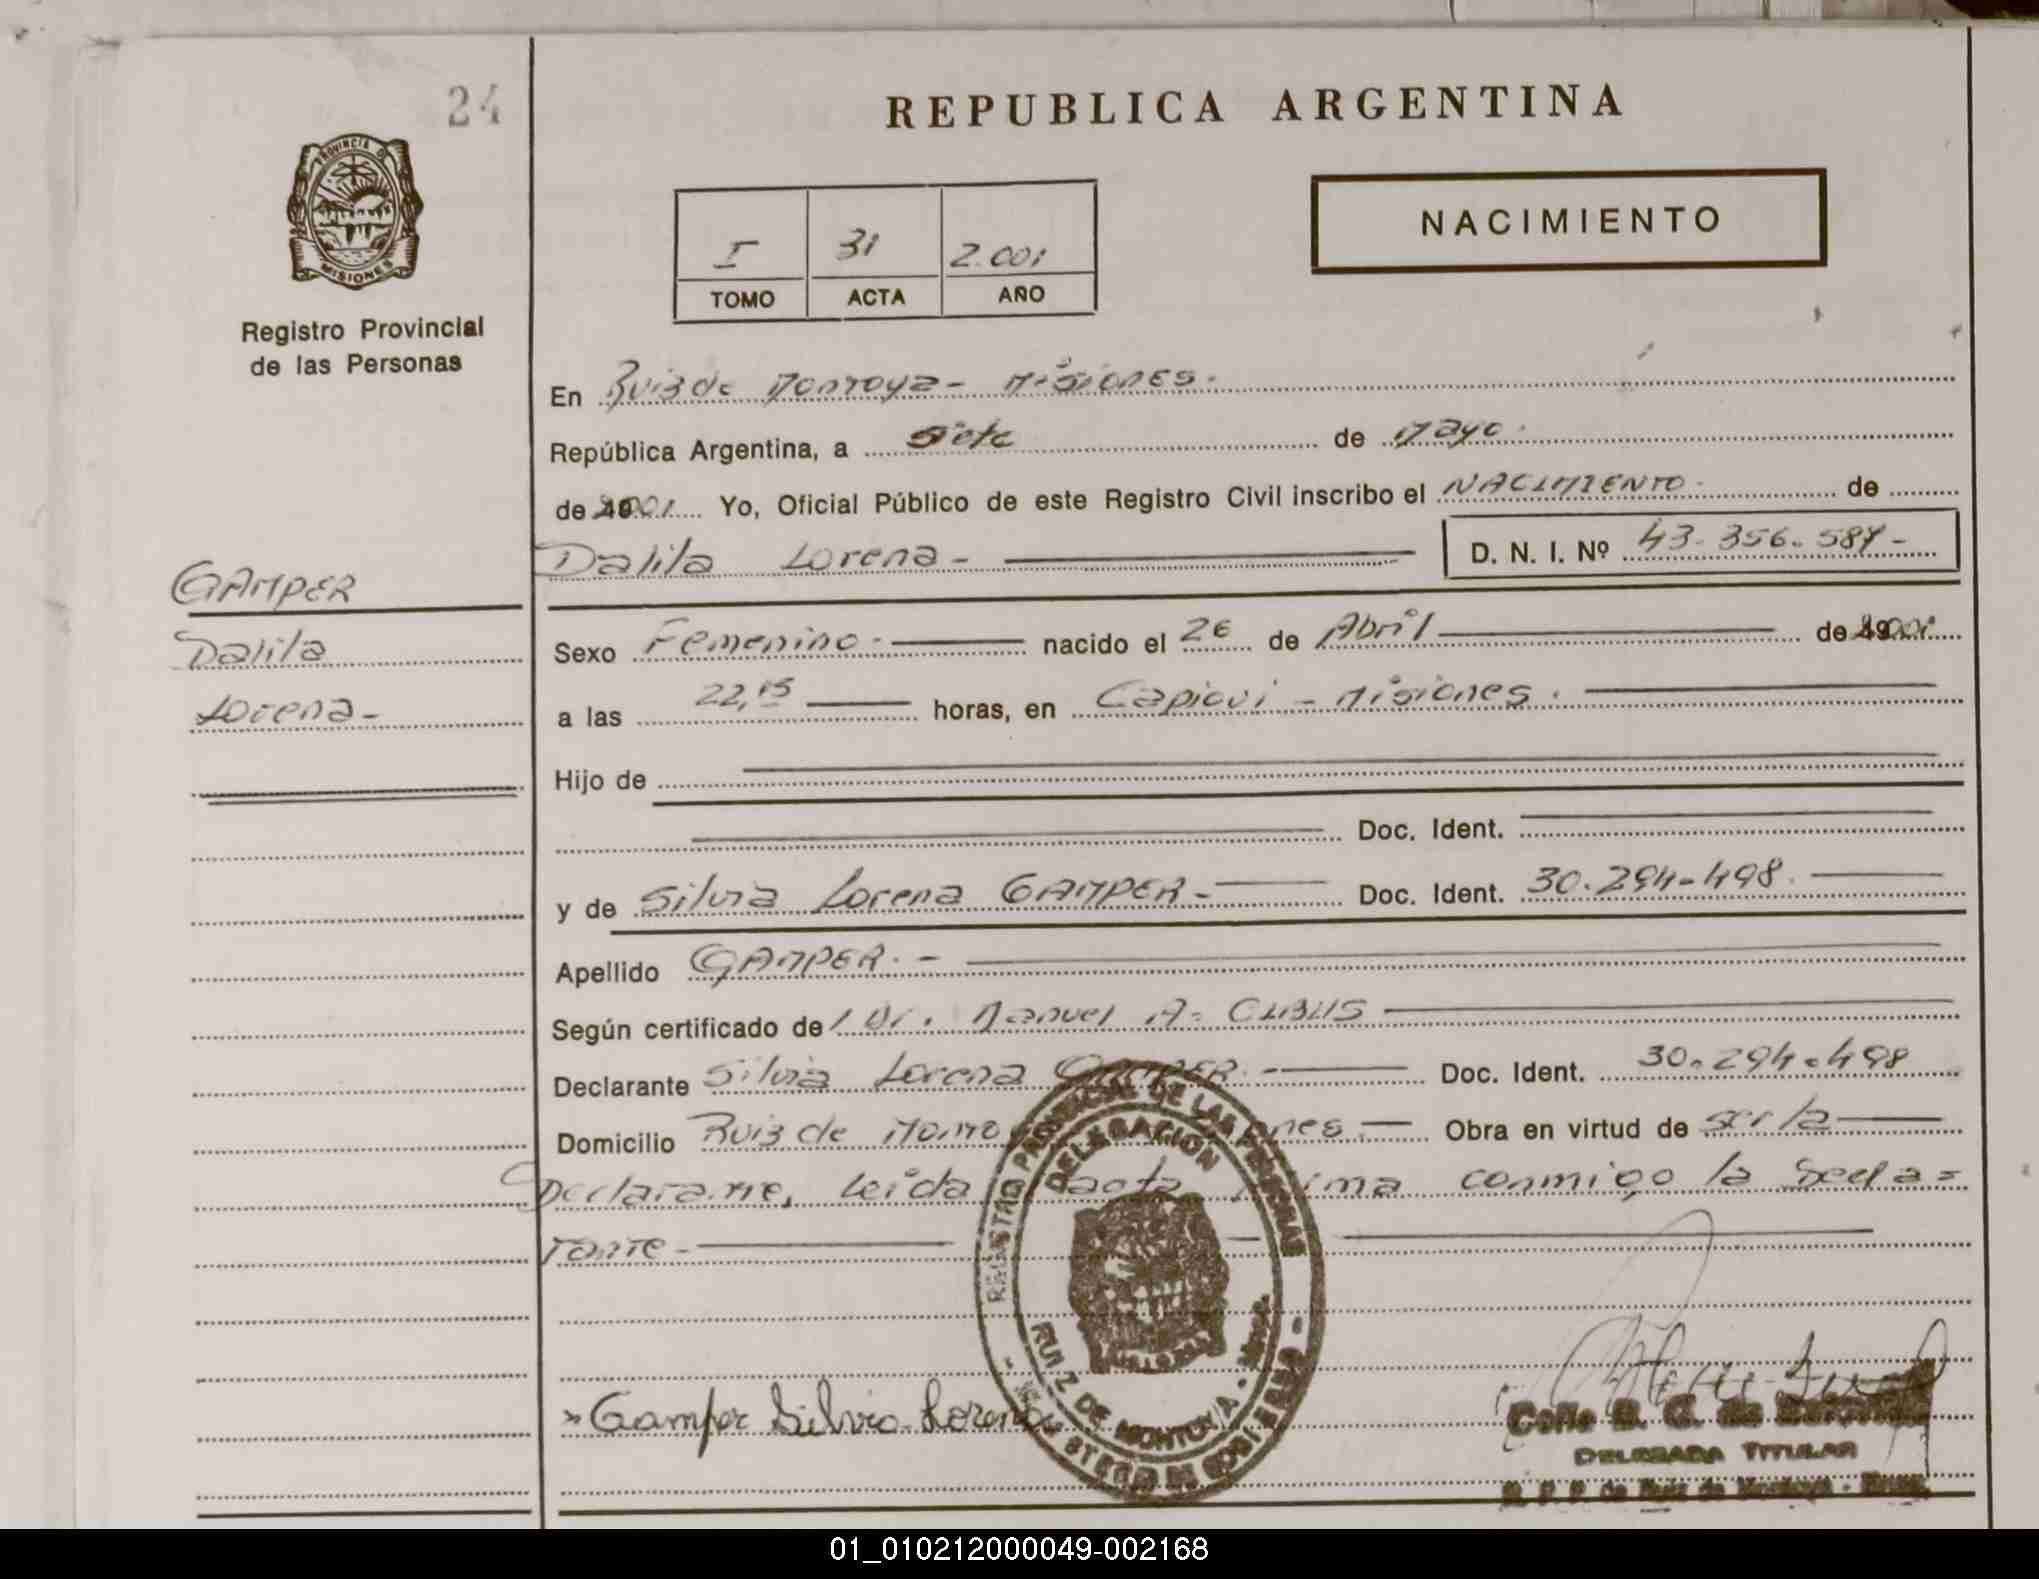 24
REPUBLICA ARGENTINA
PROVINCIA DE
MISIONES
NACIMIENTO
I 31 2.001
TOMO ACTA AÑO
Registro Provincial
de las Personas
En Ruiz de Montoya - Misiones.
República Argentina, a siete de Mayo.
de 2001 Yo, Oficial Público de este Registro Civil inscribo el NACIMIENTO. de
Dalila Lorena - D. N. I. Nº 43.356.587-
GAMPER
Dalila
Lorena-
Sexo Femenino. nacido el 26 de Abril de 2001
a las 22,15 horas, en Capiovi - Misiones.
Hijo de
Doc. Ident.
y de Silvia Lorena GAMPER- Doc. Ident. 30.294-498.
Apellido GAMPER. -
Según certificado de Dr. Manuel A.
Declarante Silvia Lorena GAMPER. Doc. Ident. 30.294.498
Domicilio Ruiz de Obra en virtud de ser la
Declarante, leida acta conmigo la
- 
Gamper Silvia Lorena
REGISTRO PROVINCIAL DE LAS PERSONAS
DELEGACION
RUIZ DE MONTOYA
DELEGADA TITULAR
R. P. P. de Ruiz de Montoya - Mnes.
01_010212000049-002168